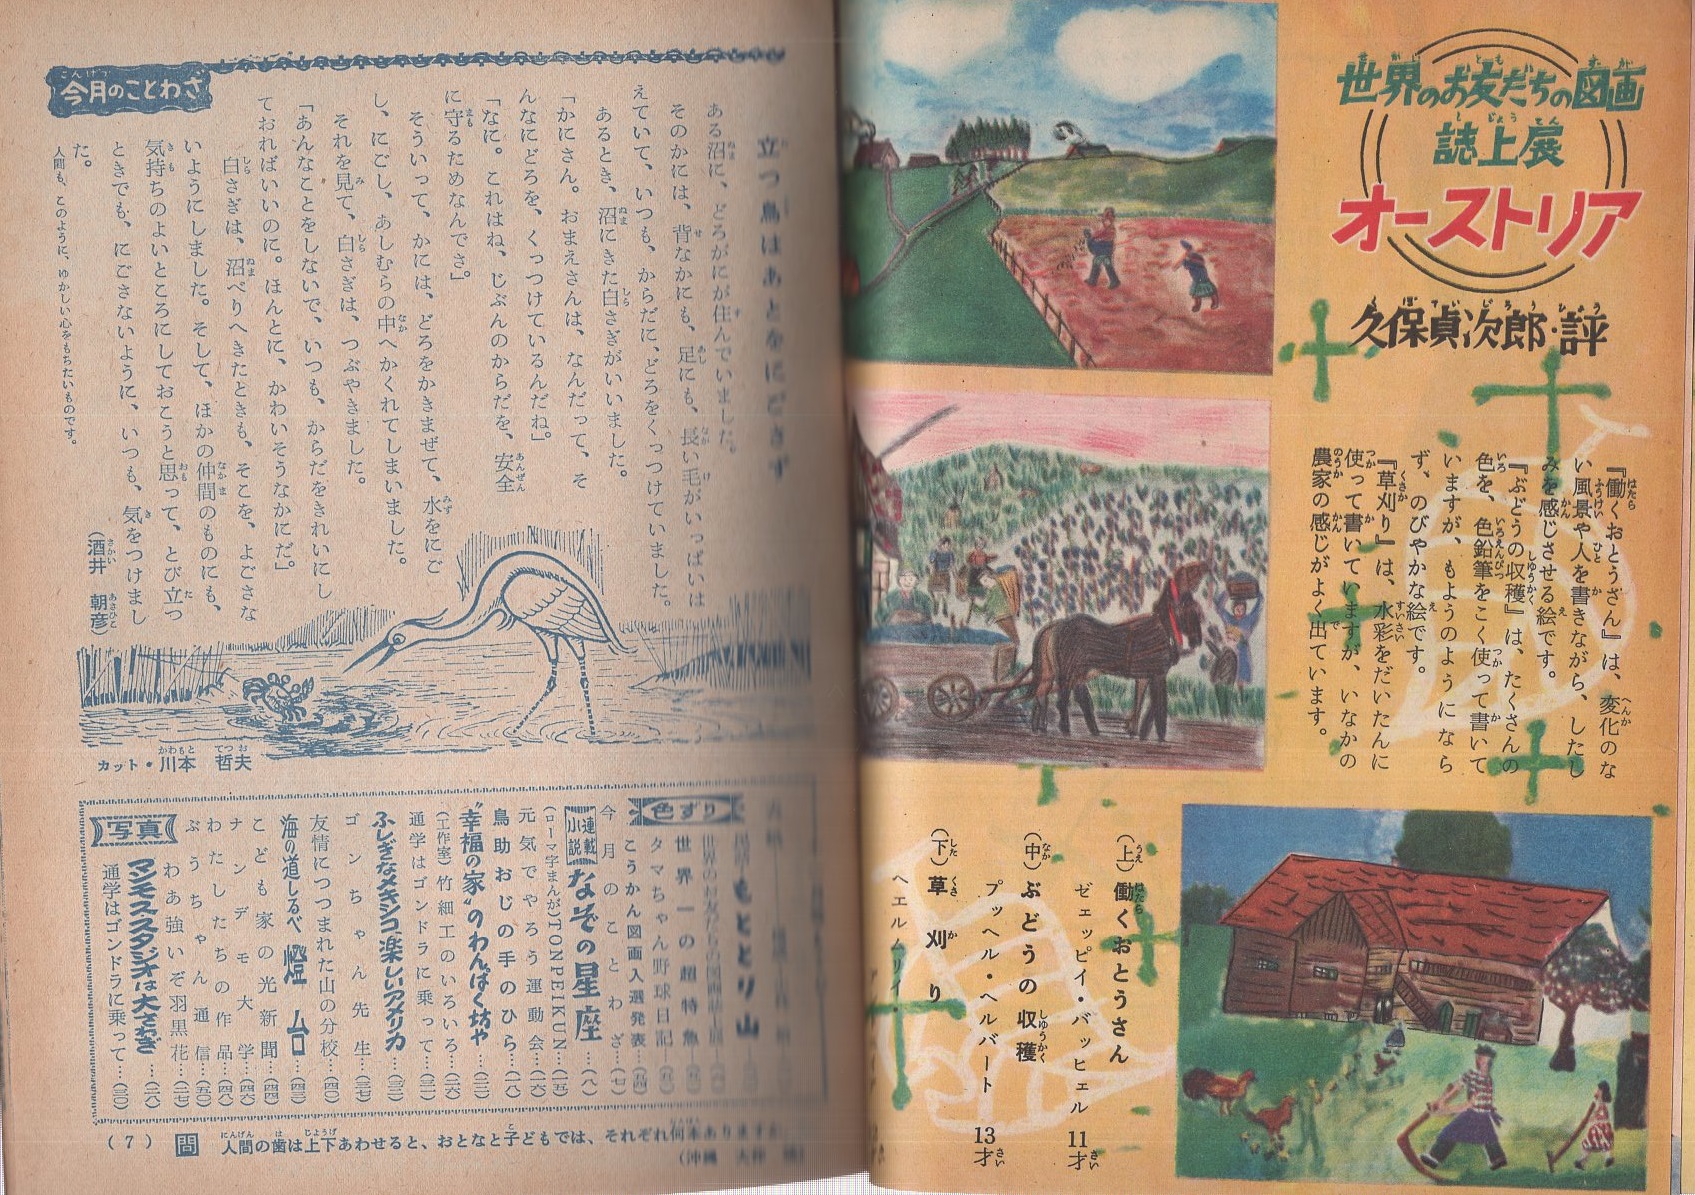 世界のお友だちの図画
誌上展
オーストリア
久保貞次郎・評
『働くおとうさん』は、変化のな
い風景や人を書きながら、したし
みを感じさせる絵です。
『ぶどうの収穫』は、たくさんの
色を、色鉛筆をこく使って書いて
いますが、もようのようになら
ず、のびやかな絵です。
『草刈り』は、水彩をだいたんに
使って書いていますが、いなかの
農家の感じがよく出ています。
(上)働くおとうさん
ゼェッピイ・バッヒェル 11才
(中)ぶどうの収穫
プッヘル・ヘルバート 13才
(下)草刈り
ヘエルムリイ・
今月のことわざ
立つ鳥はあとをにごさず
ある沼に、どろがにが住んでいました。
そのかには、背なかにも、足にも、長い毛がいっぱいは
えていて、いつも、からだに、どろをくっつけていました。
あるとき、沼にきた白さぎがいいました。
「かにさん。おまえさんは、なんだって、そ
んなにどろを、くっつけているんだね」
「なに。これはね、じぶんのからだを、安全
に守るためなんでさ」
そういって、かには、どろをかきまぜて、水をにご
し、にごし、あしむらの中へかくれてしまいました。
それを見て、白さぎは、つぶやきました。
「あんなことをしないで、いつも、からだをきれいにし
ておればいいのに。ほんとに、かわいそうなかにだ」
白さぎは、沼べりへきたときも、そこを、よごさな
いようにしました。そして、ほかの仲間のものにも、
気持ちのよいところにしておこうと思って、とび立つ
ときでも、にごさないように、いつも、気をつけまし
た。
人間も、このように、ゆかしい心をもちたいものです。
(酒井 朝彦)
カット・川本 哲夫
もととり山
色ずり
世界一の超特急
タマちゃん野球日記
こうかん図画入選発表
今月のことわざ…(七)
連載小説 なぞの星座…(八)
(ローマ字まんが)TONPEIKUN…(一五)
元気でやろう運動会…(一六)
鳥助おじの手のひら…(一八)
“幸福の家”のわんぱく坊や…(二二)
(工作室)竹細工のいろいろ…(二六)
通学はゴンドラに乗って…(三一)
ふしぎなメキシコ、楽しいアメリカ…(三二)
ゴンちゃん先生…(三七)
友情につつまれた山の分校…(四〇)
海の道しるべ 燈台…(四三)
こども家の光新聞…(四四)
ナンデモ大学…(四六)
わたしたちの作品…(四八)
ぶうちゃん通信…(五〇)
写真
わあ強いぞ羽黒花…(二七)
マンモススタジオは大さわぎ…(二八)
通学はゴンドラに乗って…(三〇)
(7) 問 人間の歯は上下あわせると、おとなと子どもでは、それぞれ何本あります